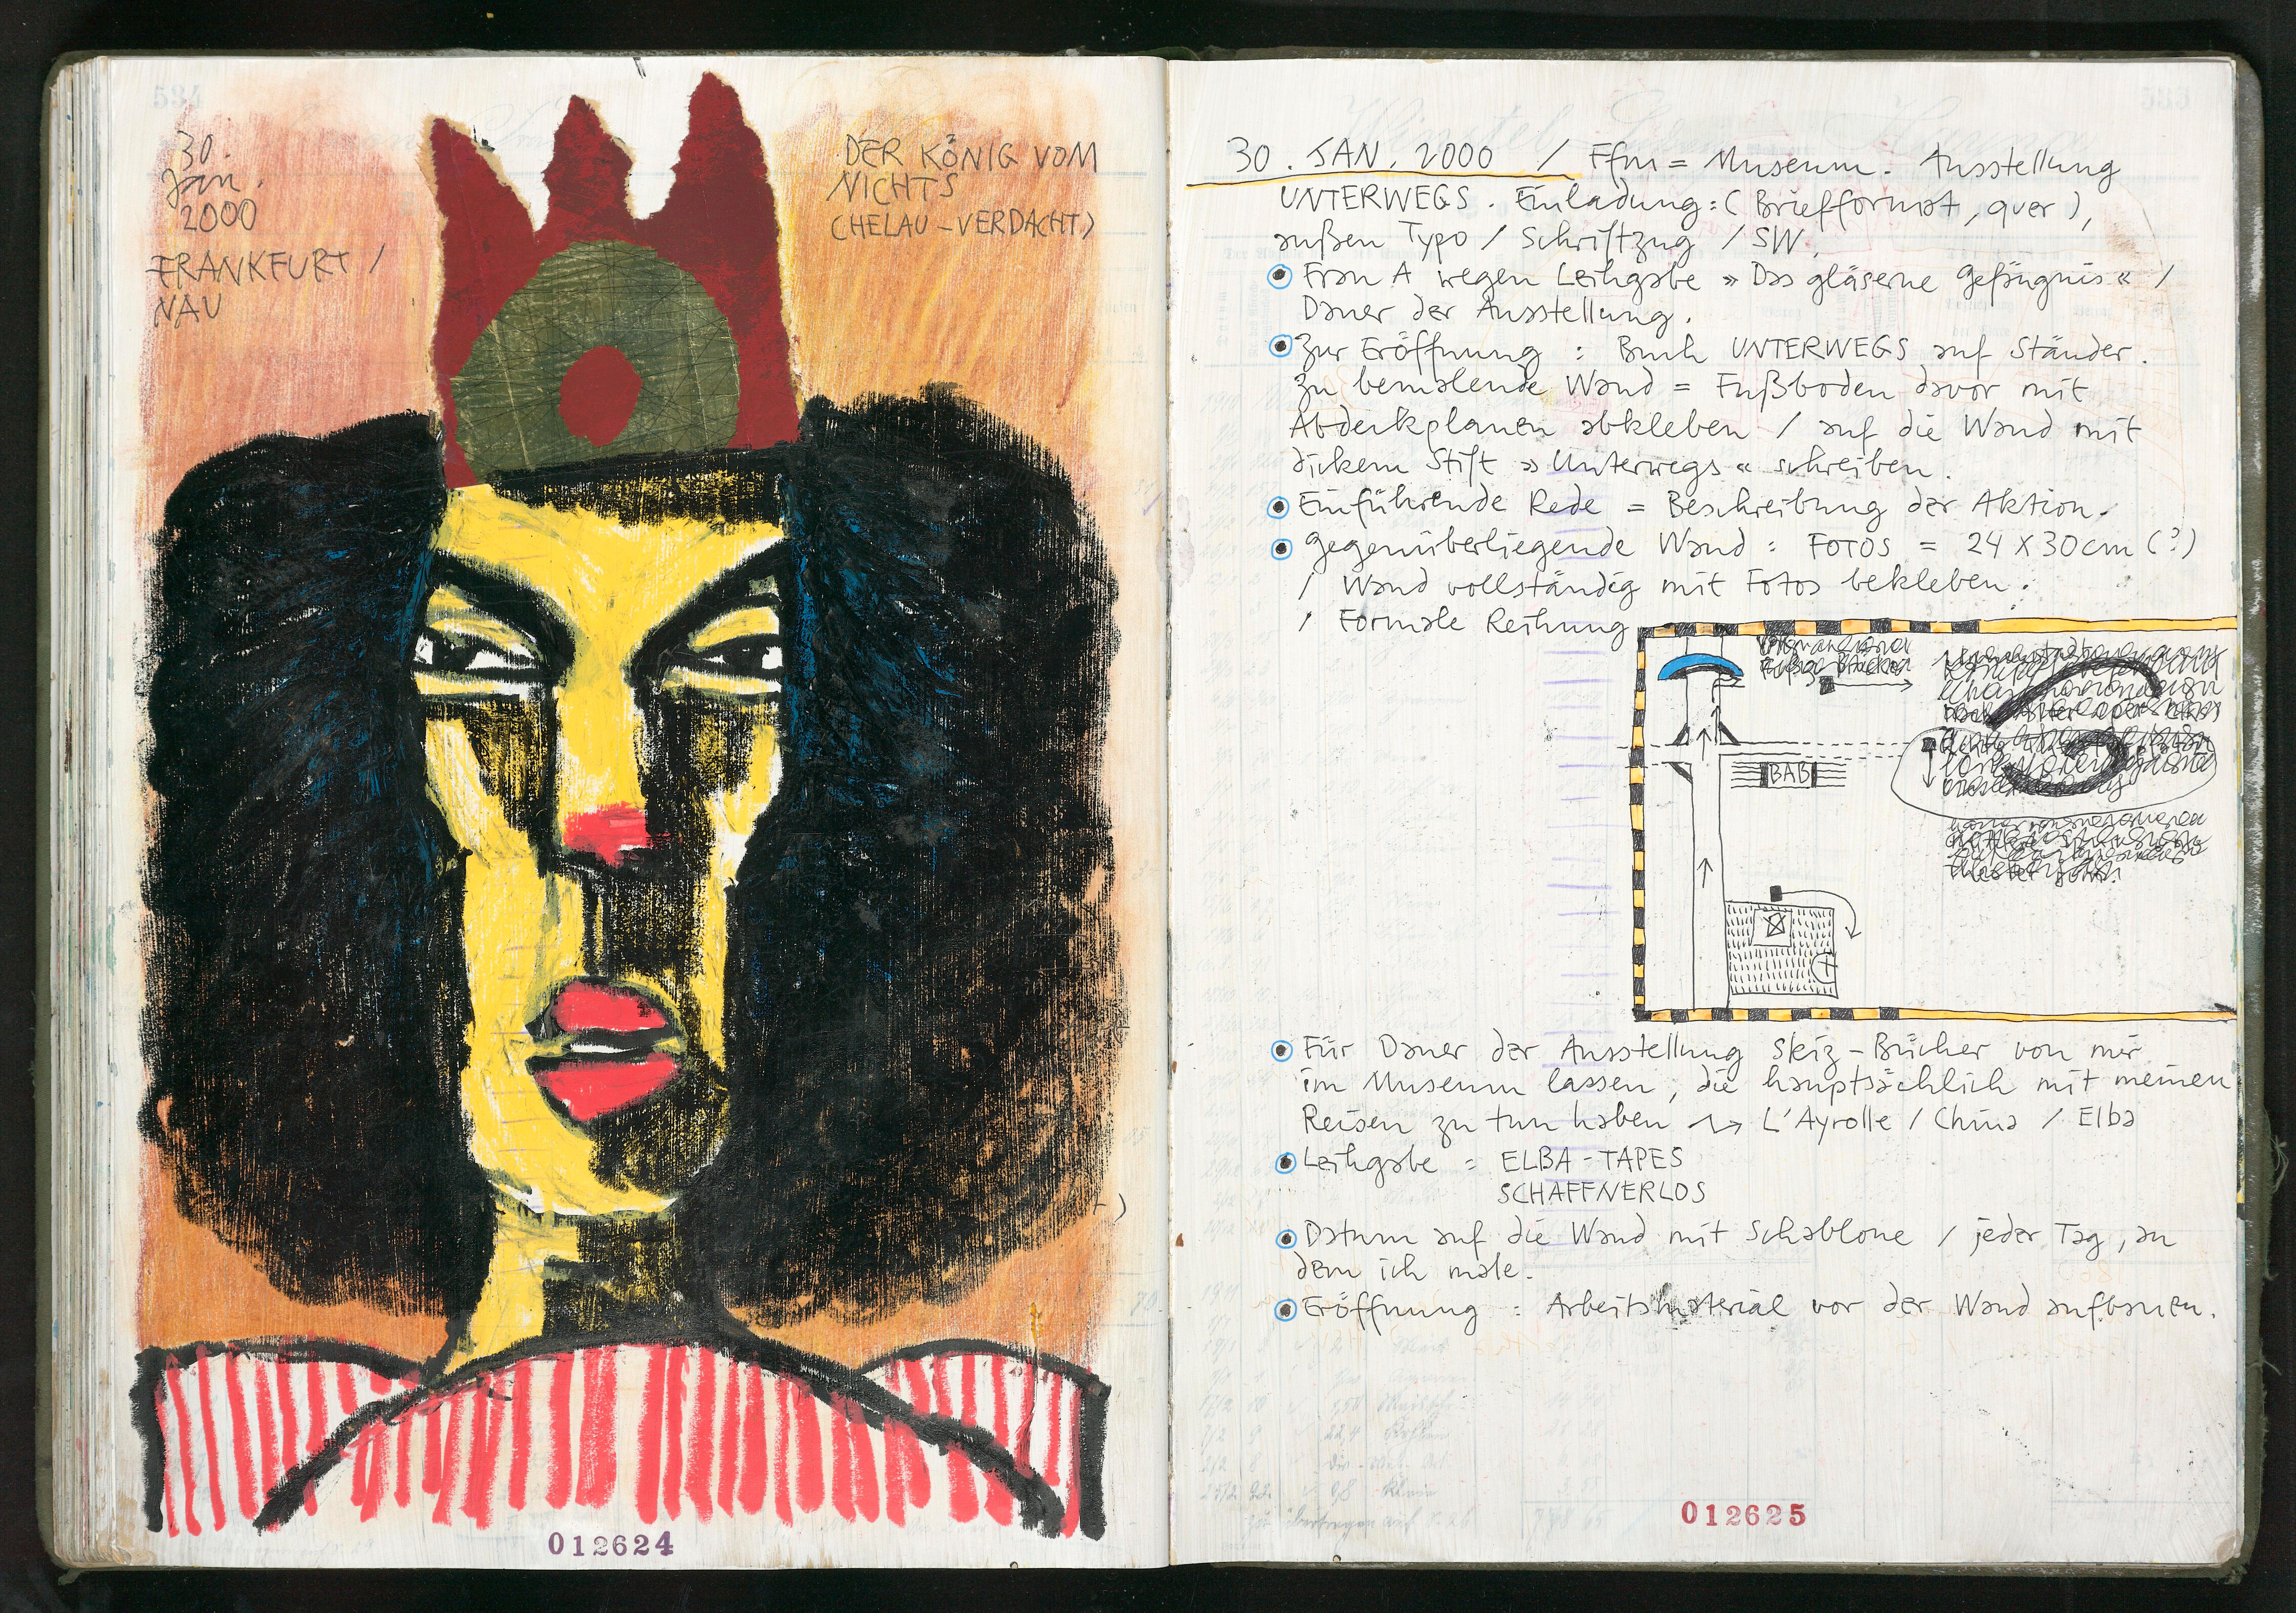 30.
Jan.
2000
FRANKFURT /
NAU
DER KÖNIG VOM
NICHTS
(HELAU-VERDACHT)
012624
30. JAN. 2000 / Ffm = Museum. Ausstellung
UNTERWEGS. Einladung: (Briefformat, quer),
außen Typo / Schriftzug / SW.
Frau A wegen Leihgabe » Das gläserne Gefängnis « /
Dauer der Ausstellung.
Zur Eröffnung : Buch UNTERWEGS auf Ständer.
Zu bemalende Wand = Fußboden davor mit
Abdeckplanen abkleben / auf die Wand mit
dickem Stift » Unterwegs « schreiben.
Einführende Rede = Beschreibung der Aktion.
Gegenüberliegende Wand : FOTOS = 24 x 30 cm (?)
/ Wand vollständig mit Fotos bekleben.
/ Formale Reihung
BAB
Für Dauer der Ausstellung Skiz-Bücher von mir
im Museum lassen, die hauptsächlich mit meinen
Reisen zu tun haben → L'Ayrolle / China / Elba
Leihgabe = ELBA-TAPES
SCHAFFNERLOS
Datum auf die Wand mit Schablone / jeder Tag, an
dem ich male.
Eröffnung : Arbeitsmaterial vor der Wand aufbauen.
012625